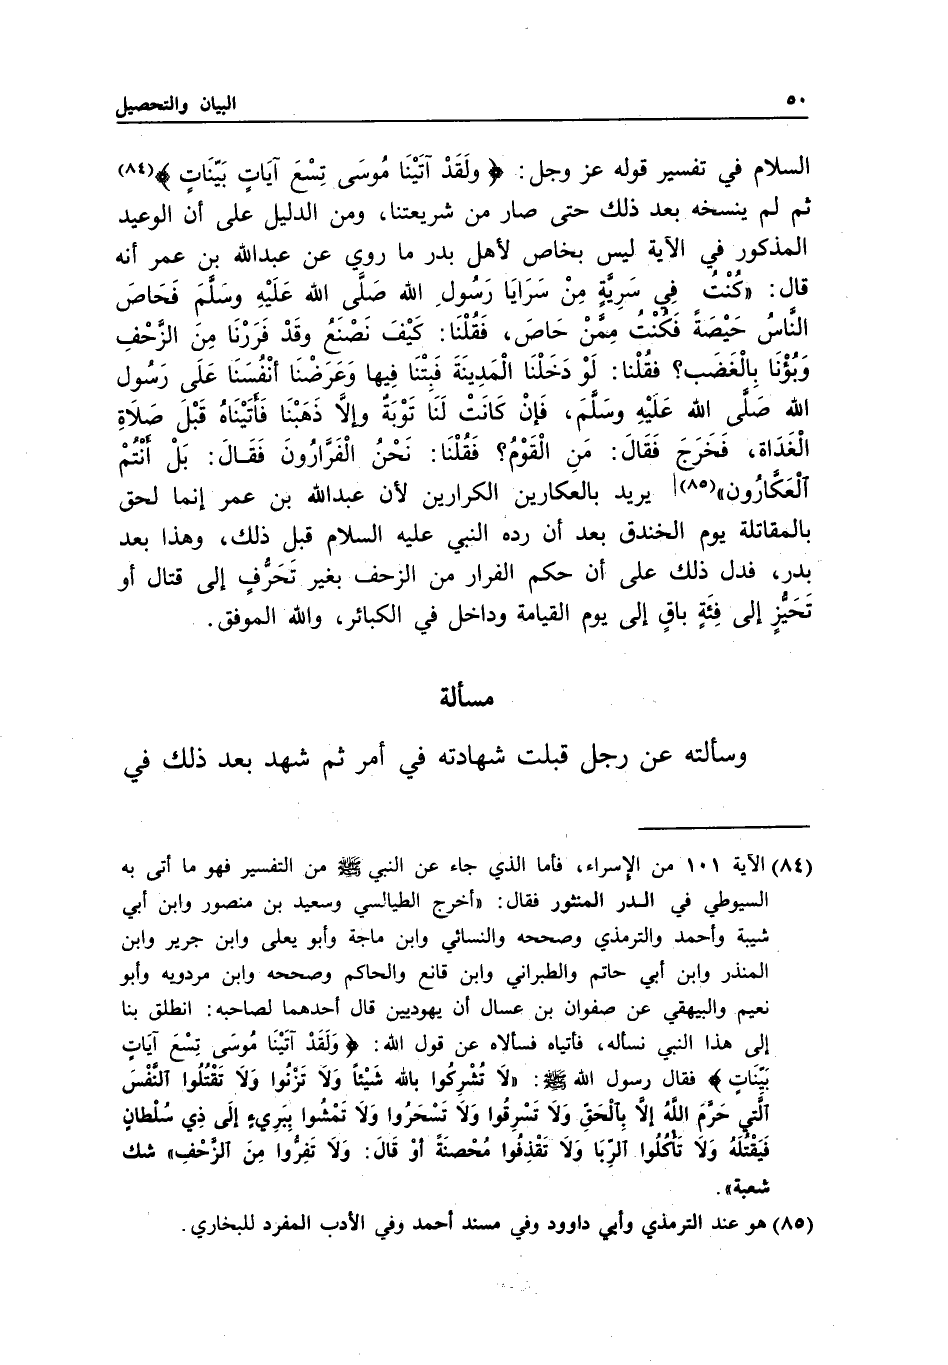 ٥٠ البيان والتحصيل
السلام في تفسير قوله عز وجل: ﴿ ولَقَدْ آتَيْنَا مُوسَى تِسْعَ آيَاتٍ بَيِّنَاتٍ ﴾(٨٤)
ثم لم ينسخه بعد ذلك حتى صار من شريعتنا، ومن الدليل على أن الوعيد
المذكور في الآية ليس بخاص لأهل بدر ما روي عن عبدالله بن عمر أنه
قال: «كُنْتُ فِي سَرِيَّةٍ مِنْ سَرَايَا رَسُولِ الله صَلَّى الله عَلَيْهِ وسَلَّمَ فَحَاصَ
النَّاسُ حَيْصَةً فَكُنْتُ مِمَّنْ حَاصَ، فَقُلْنَا: كَيْفَ نَصْنَعُ وقَدْ فَرَرْنَا مِنَ الزَّحْفِ
وَبُؤْنَا بِالْغَضَب؟ فقُلْنا: لَوْ دَخَلْنَا الْمَدِينَةَ فَبِتْنَا فِيها وَعَرَضْنا أنْفُسَنَا عَلَى رَسُولِ
الله صَلَّى الله عَلَيْهِ وسَلَّمَ، فَإِنْ كَانَتْ لَنَا تَوْبَةٌ وإِلَّا ذَهَبْنَا فَأَتَيْنَاهُ قَبْلَ صَلَاةِ
الْغَدَاة، فَخَرَجَ فَقَالَ: مَنِ الْقَوْمُ؟ فَقُلْنَا: نَحْنُ الْفَرَّارُونَ فَقَالَ: بَلْ أَنْتُمْ
الْعَكَّارُون»(٨٥) يريد بالعكارين الكرارين لأن عبدالله بن عمر إنما لحق
بالمقاتلة يوم الخندق بعد أن رده النبي عليه السلام قبل ذلك، وهذا بعد
بدر، فدل ذلك على أن حكم الفرار من الزحف بغير تَحَرُّفٍ إلى قتال أو
تَحَيُّزٍ إلى فِئَةٍ باقٍ إلى يوم القيامة وداخل في الكبائر، والله الموفق.
مسألة
وسألته عن رجل قبلت شهادته في أمر ثم شهد بعد ذلك في
(٨٤) الآية ١٠١ من الإسراء، فأما الذي جاء عن النبي ﷺ من التفسير فهو ما أتى به
السيوطي في الدر المنثور فقال: «أخرج الطيالسي وسعيد بن منصور وابن أبي
شيبة وأحمد والترمذي وصححه والنسائي وابن ماجة وأبو يعلى وابن جرير وابن
المنذر وابن أبي حاتم والطبراني وابن قانع والحاكم وصححه وابن مردويه وأبو
نعيم والبيهقي عن صفوان بن عسال أن يهوديين قال أحدهما لصاحبه: انطلق بنا
إلى هذا النبي نسأله، فأتياه فسألاه عن قول الله: ﴿ وَلَقَدْ آتَيْنَا مُوسَى تِسْعَ آيَاتٍ
بَيِّنَاتٍ ﴾ فقال رسول الله ﷺ: «لَا تُشْرِكُوا بالله شَيْئاً وَلَا تَزْنُوا وَلَا تَقْتُلُوا النَّفْسَ
الَّتِي حَرَّمَ اللَّهُ إلَّا بِالْحَقِّ وَلَا تَسْرِقُوا وَلَا تَسْحَرُوا وَلَا تَمْشُوا بِبَرِيءٍ إِلَى ذِي سُلْطَانٍ
فَيَقْتُلَهُ وَلَا تَأْكُلُوا الرِّبَا وَلَا تَقْذِفُوا مُحْصَنَةً أوْ قَالَ: وَلَا تَفِرُّوا مِنَ الزَّحْفِ» شك
شعبة».
(٨٥) هو عند الترمذي وأبي داوود وفي مسند أحمد وفي الأدب المفرد للبخاري.